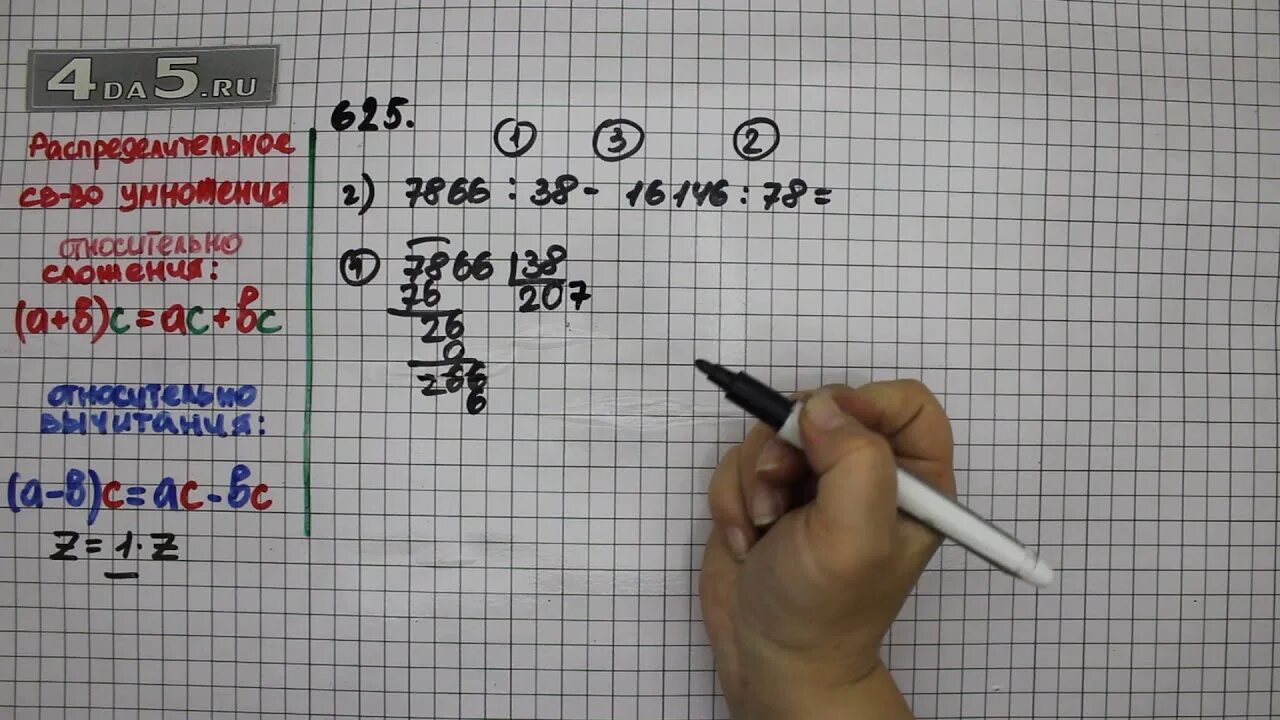 4DA5.RU
Распределительное
св-во умножения
относительно
сложения:
(a+b)c=ac+bc
относительно
вычитания:
(a-b)c=ac-bc
z=1·z
625.
① ③ ②
г) 7866 : 38 - 16146 : 78 =
① 7866 | 38
76 207
26
0
266
6